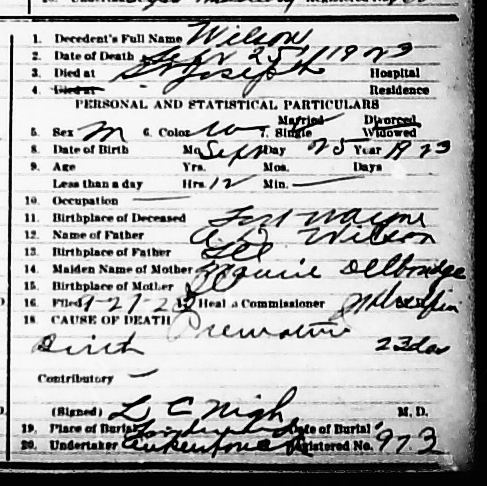 1. Decedent's Full Name Wilson
2. Date of Death Sept 25, 1923
3. Died at St Joseph Hospital
4. Died at Residence
PERSONAL AND STATISTICAL PARTICULARS
Married Divorced
5. Sex M 6. Color W 7. Single Widowed
8. Date of Birth Mo. Sept Day 25 Year 1923
9. Age Yrs. Mos. Days
Less than a day Hrs. 12 Min. —
10. Occupation —
11. Birthplace of Deceased Fort Wayne
12. Name of Father A. D. Wilson
13. Birthplace of Father Ill
14. Maiden Name of Mother Delbridge
15. Birthplace of Mother Ill
16. Filed 9-27-23 17. Health Commissioner
18. CAUSE OF DEATH Premature
Birth
Contributory —
(Signed) L C Nigh M. D.
19. Place of Burial Date of Burial
20. Undertaker Registered No. 973